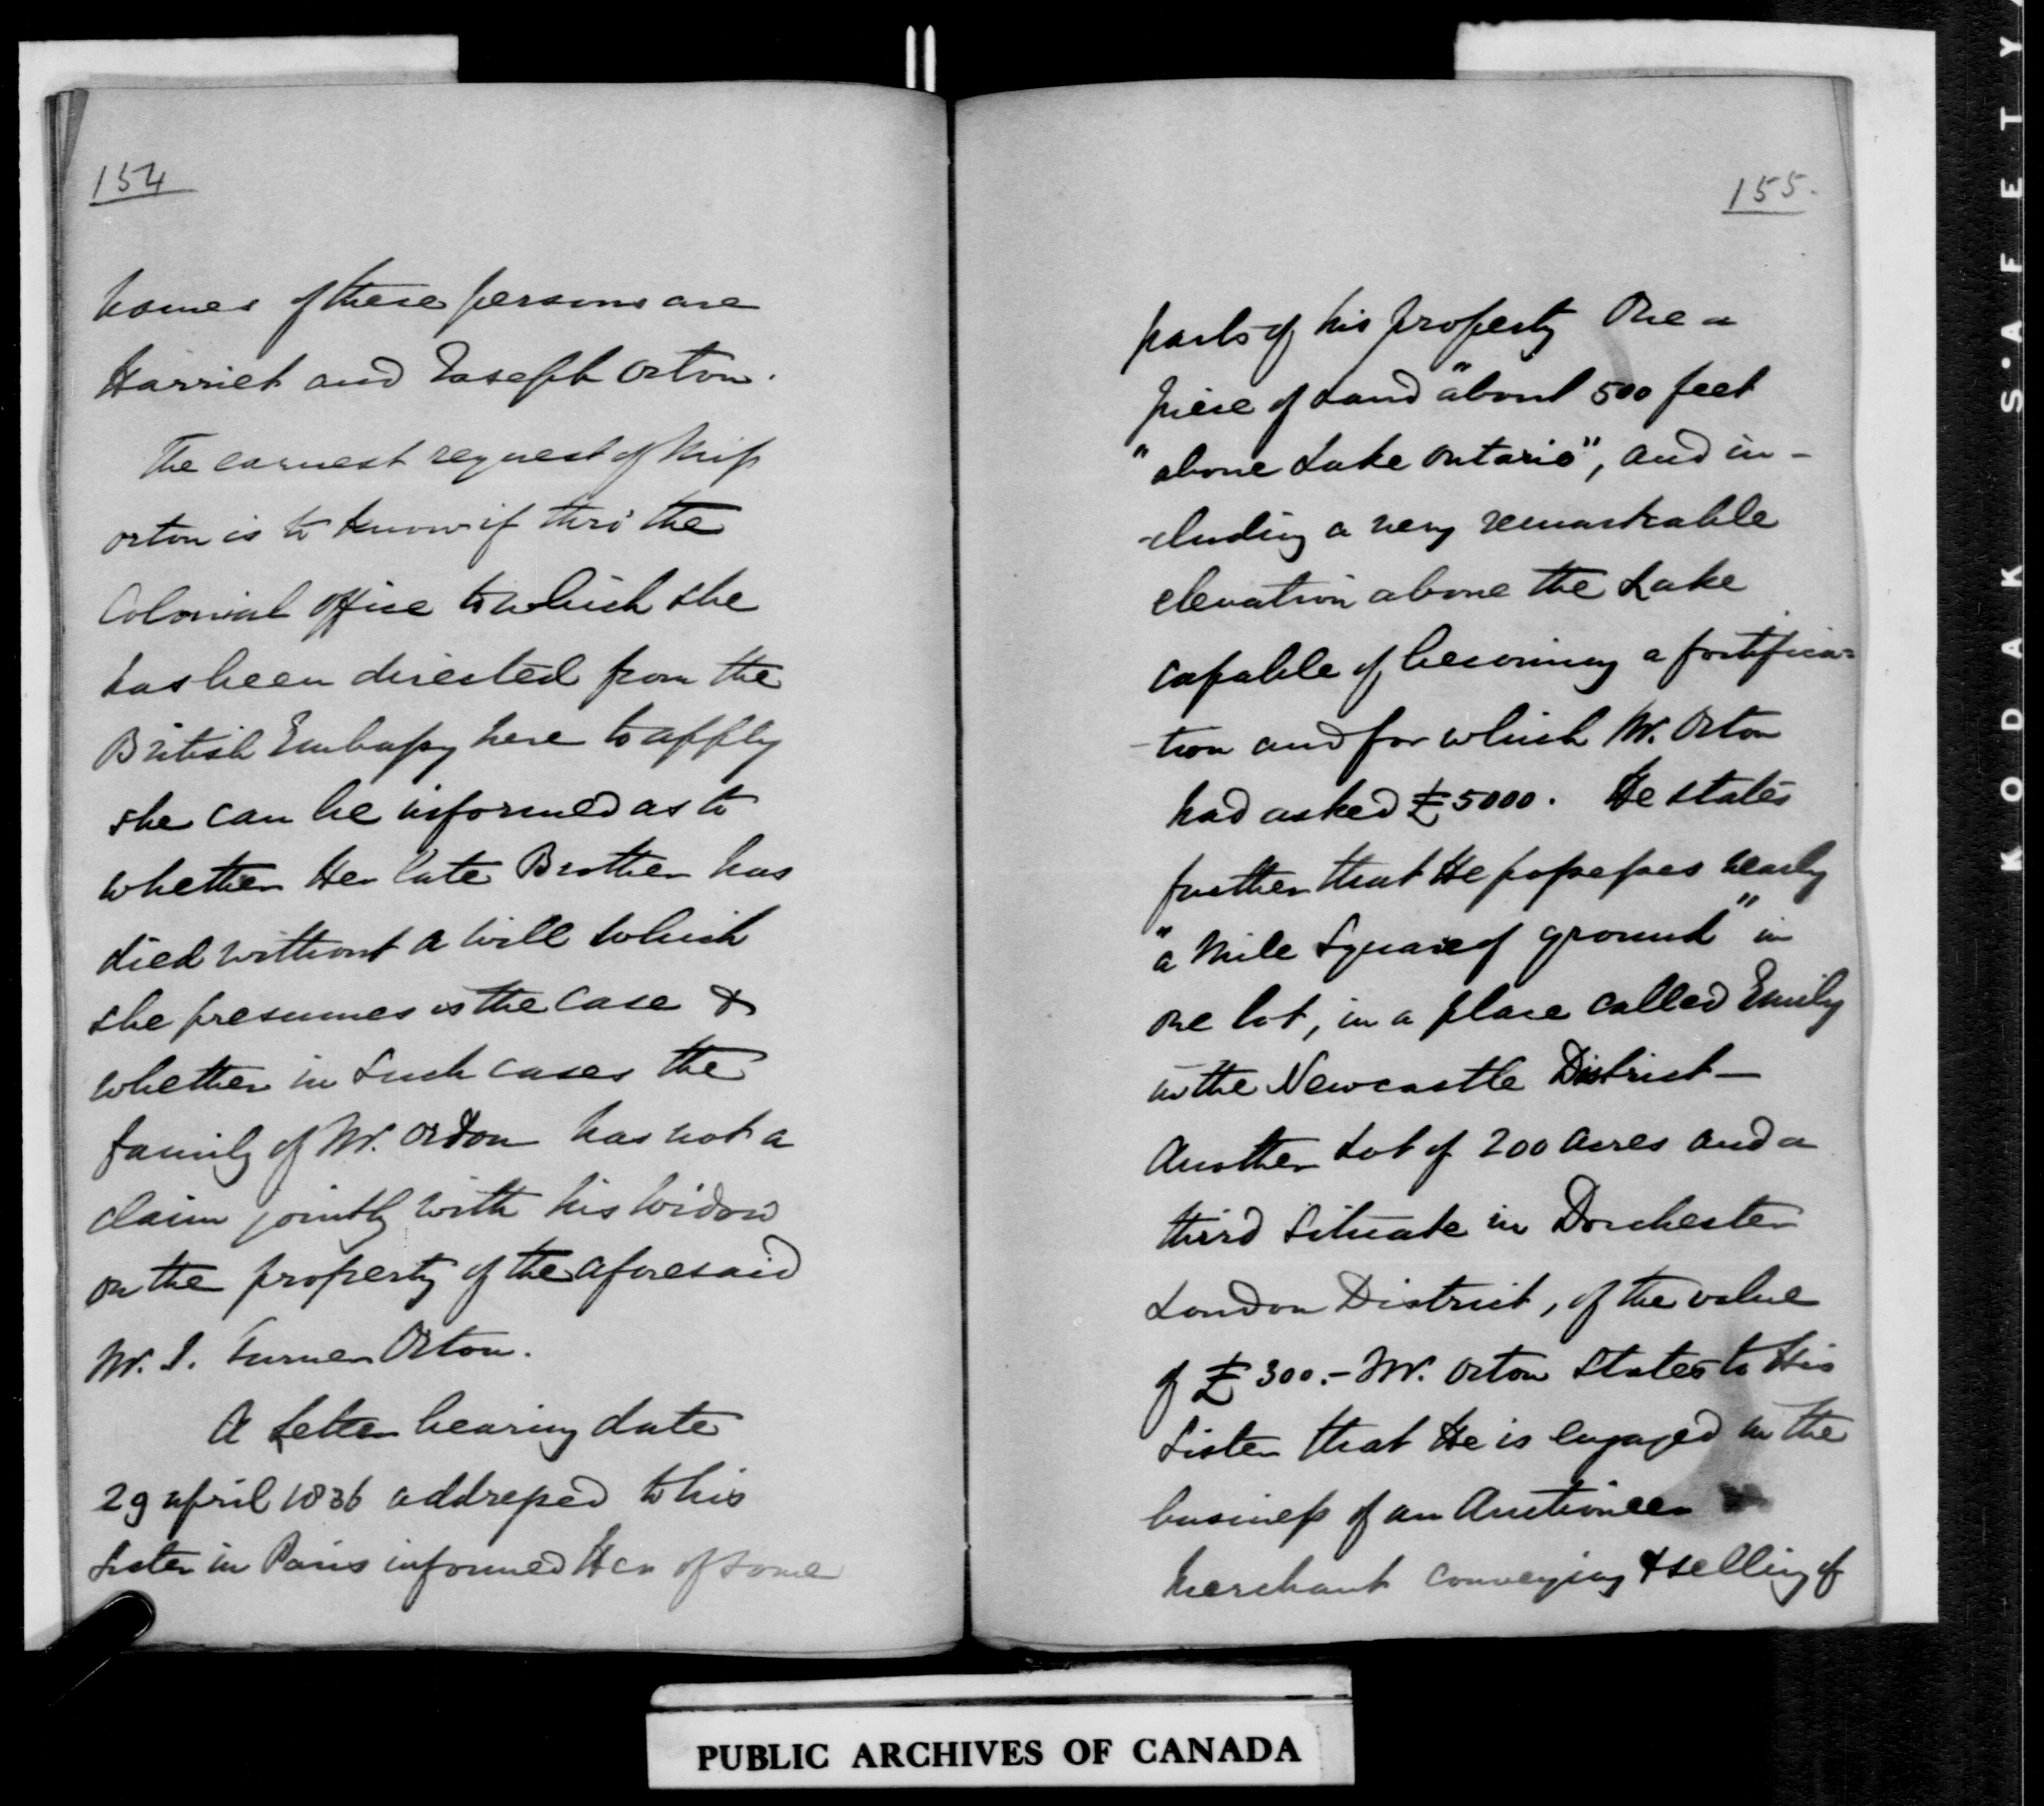 154
names of these persons are
Harriet and Joseph Orton.
The earnest request of Miss
Orton is to know if thro' the
Colonial Office to which she
has been directed from the
British Embassy here to apply
she can be informed as to
whether Her late Brother has
died without a will which
she presumes is the case &
whether in such cases the
family of Mr. Orton has not a
claim jointly with his widow
on the property of the aforesaid
Mr. J. Turner Orton.
A letter bearing date
29 April 1836 addressed to his
Sister in Paris informed Her of some
155.
parts of his property One a
piece of Land "about 500 feet
"above Lake Ontario", and in-
-cluding a very remarkable
elevation above the Lake
capable of becoming a fortifica=
-tion and for which Mr. Orton
had asked £5000. He states
further that He possesses nearly
"a Mile Square of ground" in
one lot, in a place called Emily
in the Newcastle District—
Another Lot of 200 Acres and a
third situate in Dorchester
London District, of the value
of £300.- Mr. Orton states to His
Sister that He is engaged in the
business of an Auctioneer
Merchant conveying & selling of
PUBLIC ARCHIVES OF CANADA
KODAK S'AFETY